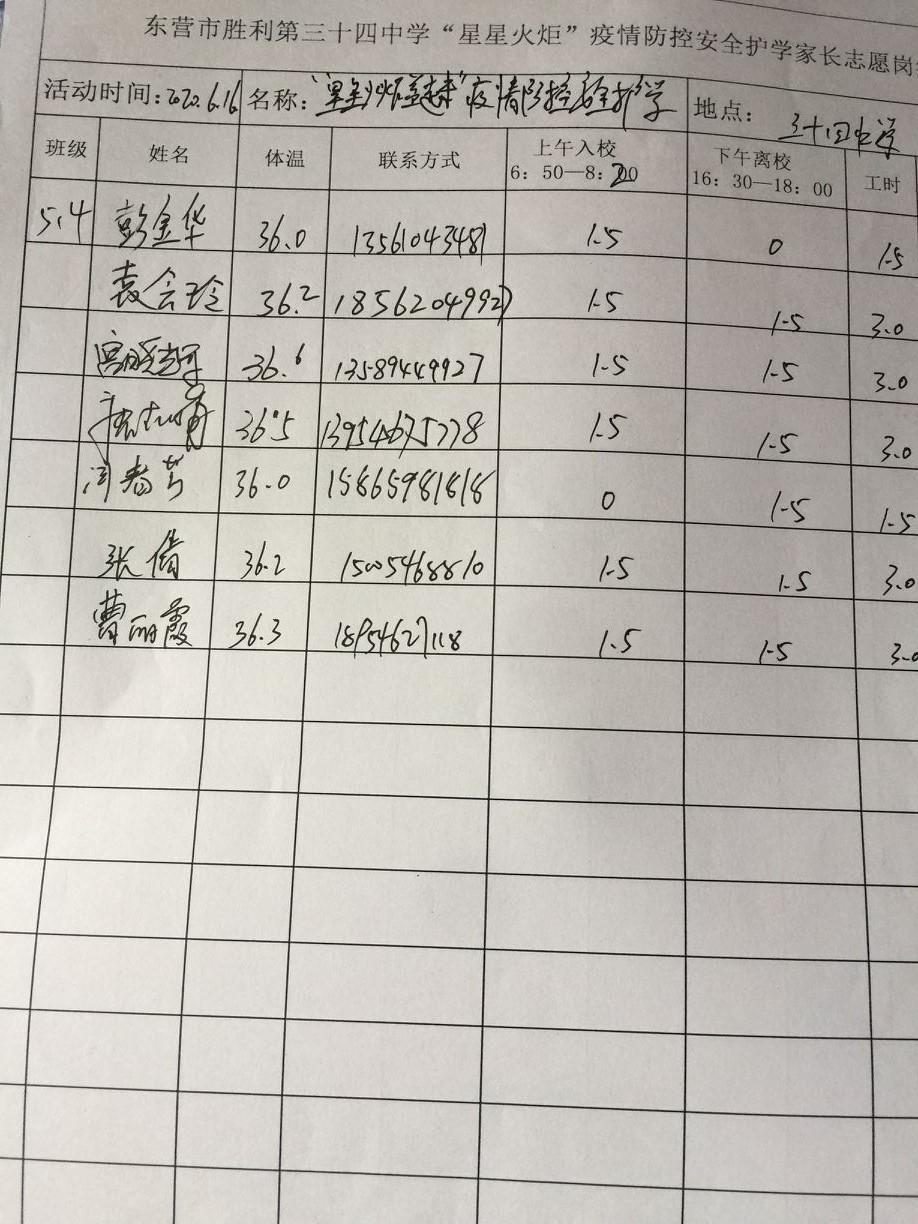 东营市胜利第三十四中学“星星火炬”疫情防控安全护学家长志愿岗
活动时间:2020.6.16 名称: 疫情防控安全护学 地点: 三十四中学
班级 姓名 体温 联系方式 上午入校 6:50—8:20 下午离校 16:30—18:00 工时
5.4 彭金华 36.0 13561043481 1.5 0 1.5
袁会玲 36.2 18562049927 1.5 1.5 3.0
36.6 13589449927 1.5 1.5 3.0
36.5 13954675778 1.5 1.5 3.0
闫春芳 36.0 15865981818 0 1.5 1.5
张倩 36.2 15005468810 1.5 1.5 3.0
曹丽霞 36.3 18954627118 1.5 1.5 3.0